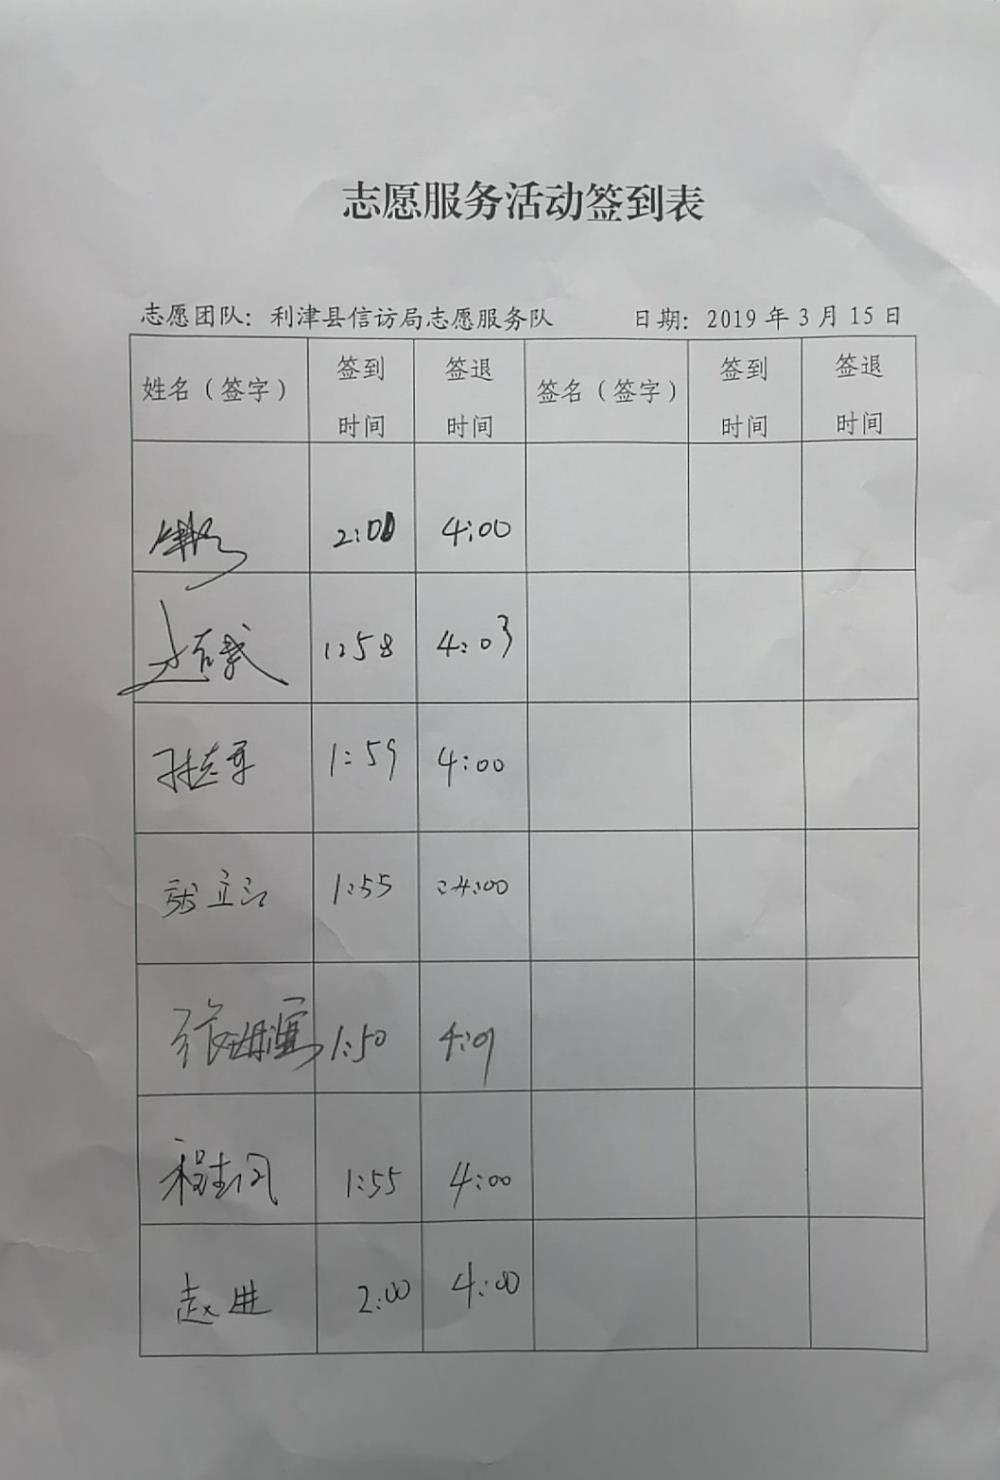 志愿服务活动签到表
志愿团队：利津县信访局志愿服务队 日期：2019年3月15日
姓名（签字） 签到时间 签退时间 签名（签字） 签到时间 签退时间
2:00 4:00
1:58 4:03
1:59 4:00
张立江 1:55 :4:00
1:50 4:09
1:55 4:00
赵进 2:00 4:00